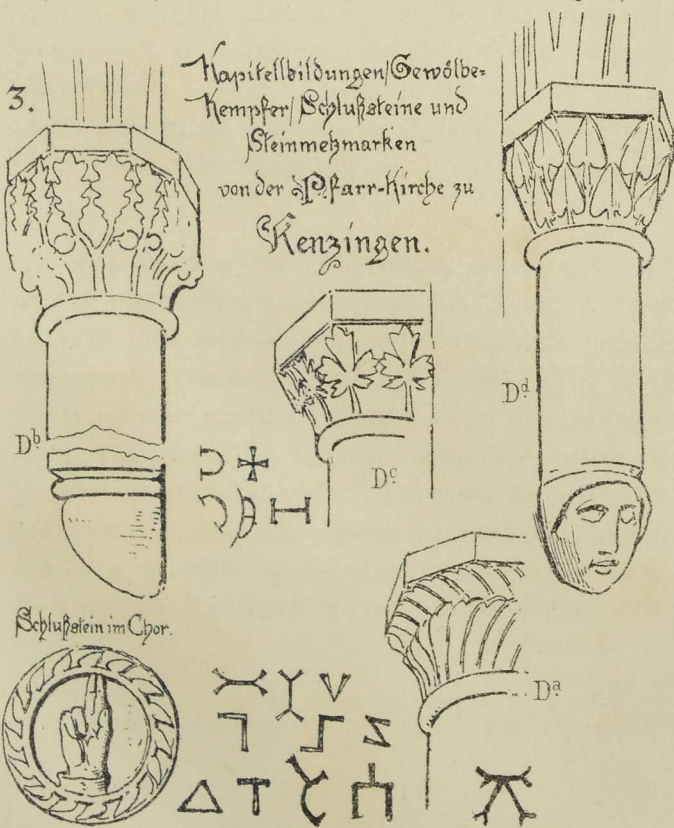 3.
Kapitellbildungen/Gewölbe=
Kempfer/Schlußsteine und
Steinmetzmarken
von der Pfarr-Kirche zu
Kenzingen.
Dᵇ.
Dᶜ.
Dᵈ.
Schlußstein im Chor.
Dᵃ.